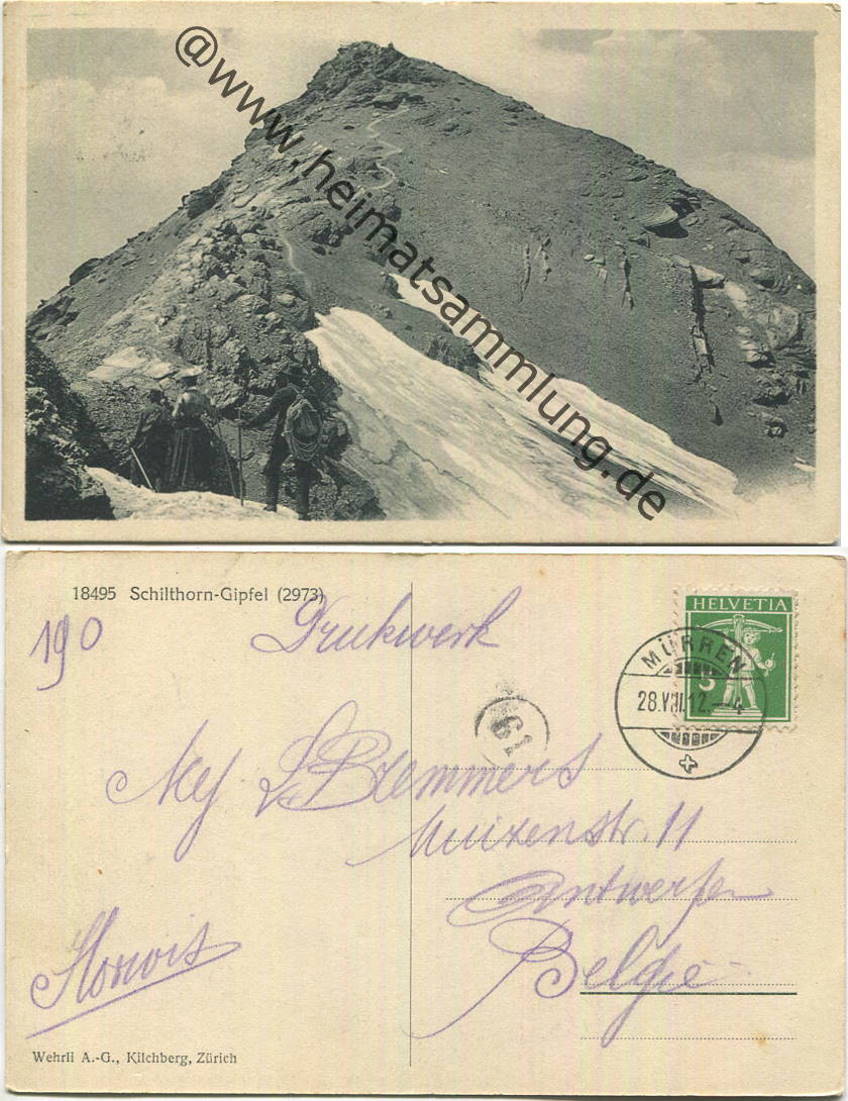 @www.heimatsammlung.de
18495 Schilthorn-Gipfel (2973)
190
Drukwerk
HELVETIA
5
MÜRREN
28.VIII.12.–4
61
Mej. L Bremmers
Muizenstr. 11
Antwerpen
Belgie
Wehrli A.-G., Kilchberg, Zürich